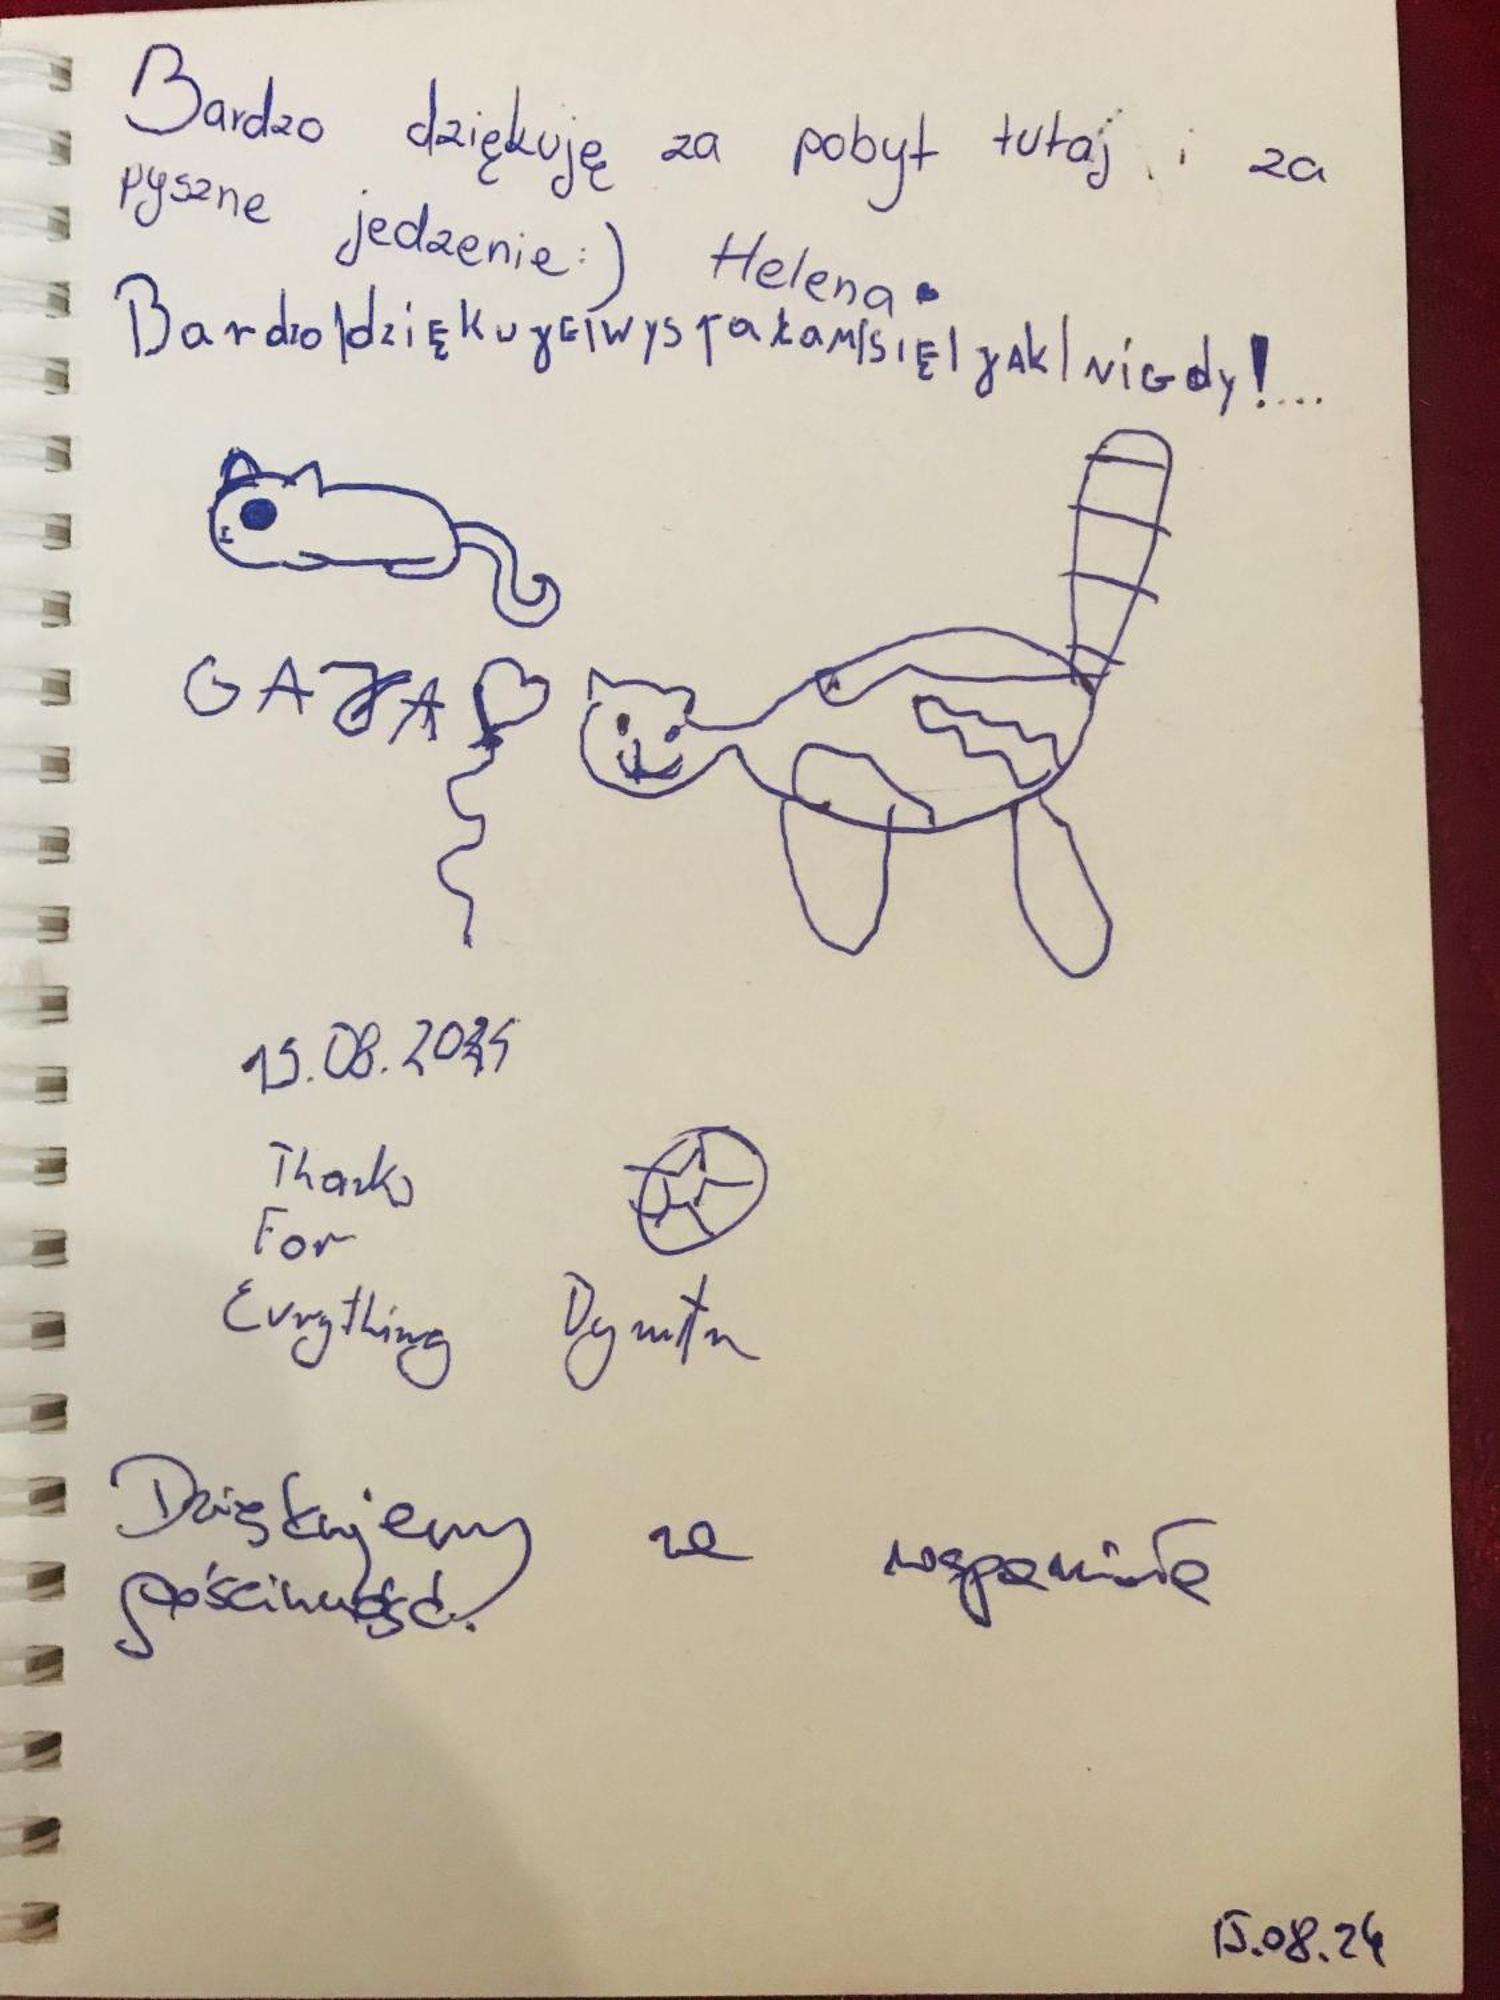 Bardzo dziękuję za pobyt tutaj i za
pyszne jedzenie :) Helena
Bardzo|dziĘkuyE|wyspałam|SIĘ|yAk|NiGdy!...
GAJA
15.08.2024
Thanks
For
Evrything Dymitr
Dziękujemy za wspaniałą
gościnność.
15.08.24